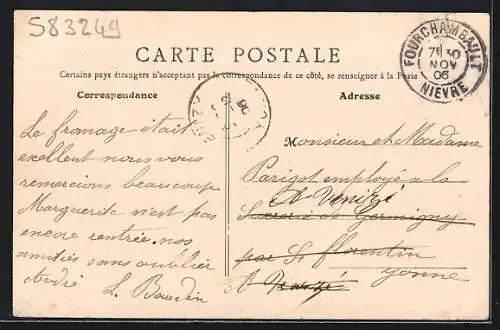 S83249
CARTE POSTALE
Certains pays étrangers n'acceptant pas la correspondance de ce côté, se renseigner à la Poste
Correspondance
Adresse
FOURCHAMBAULT
NOV
06
NIEVRE
Le fromage était
exellent nous vous
remercions beaucoup
Marguerite n'est pas
encore rentrée, nos
amitiés sans oublier
André
L. Baudin
Monsieur et Madame
Parigot employé a la
A
Sucrerie de Germigny
par St florentin
Yonne
A